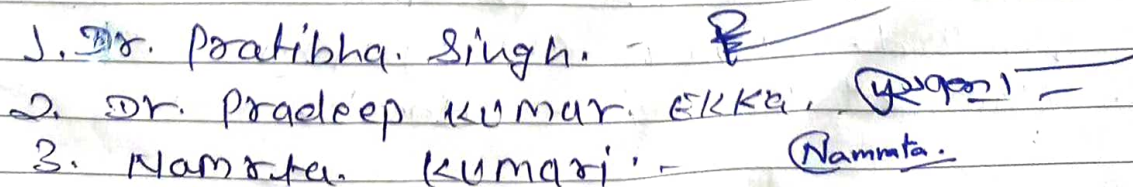 1. Dr. Pratibha. Singh. -
2. Dr. Pradeep Kumar. Ekka.
3. Namrta. Kumari. - Namrata.